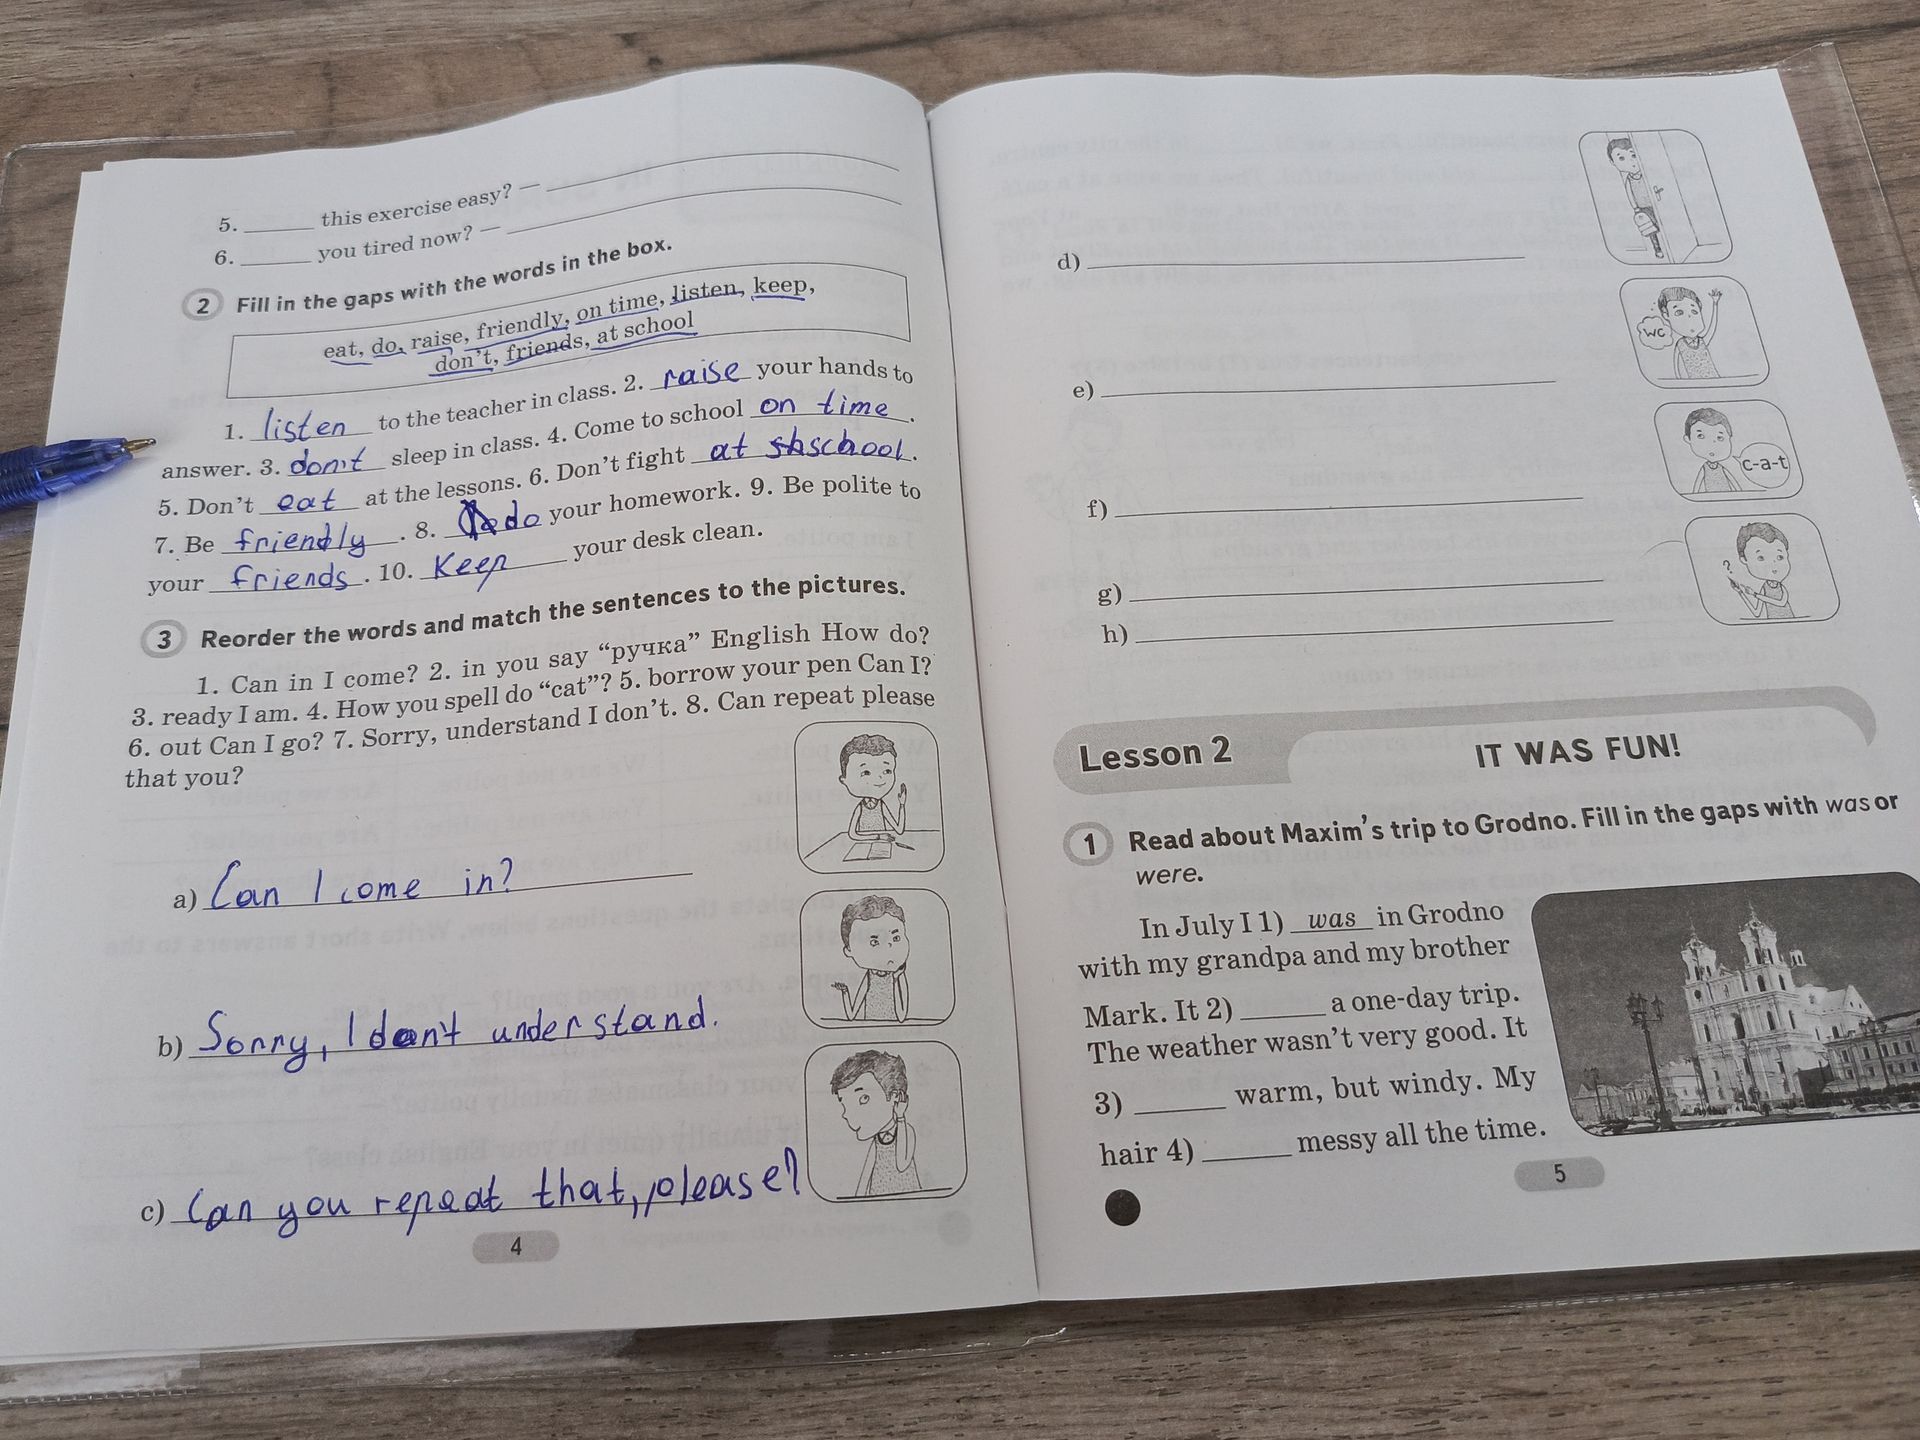 5. ______ this exercise easy? — ______
6. ______ you tired now? — ______
2 Fill in the gaps with the words in the box.
eat, do, raise, friendly, on time, listen, keep,
don't, friends, at school
1. listen to the teacher in class. 2. raise your hands to
answer. 3. don't sleep in class. 4. Come to school on time.
5. Don't eat at the lessons. 6. Don't fight at shschool.
7. Be friendly. 8. do your homework. 9. Be polite to
your friends. 10. Keep your desk clean.
3 Reorder the words and match the sentences to the pictures.
1. Can in I come? 2. in you say “ручка” English How do?
3. ready I am. 4. How you spell do “cat”? 5. borrow your pen Can I?
6. out Can I go? 7. Sorry, understand I don't. 8. Can repeat please
that you?
a) Can I come in?
b) Sorry, I don't understand.
c) Can you repeat that, please?
4
d)
WC
e)
c-a-t
f)
?
g)
h)
Lesson 2 IT WAS FUN!
1 Read about Maxim's trip to Grodno. Fill in the gaps with was or
were.
In July I 1) was in Grodno
with my grandpa and my brother
Mark. It 2) ______ a one-day trip.
The weather wasn't very good. It
3) ______ warm, but windy. My
hair 4) ______ messy all the time.
5